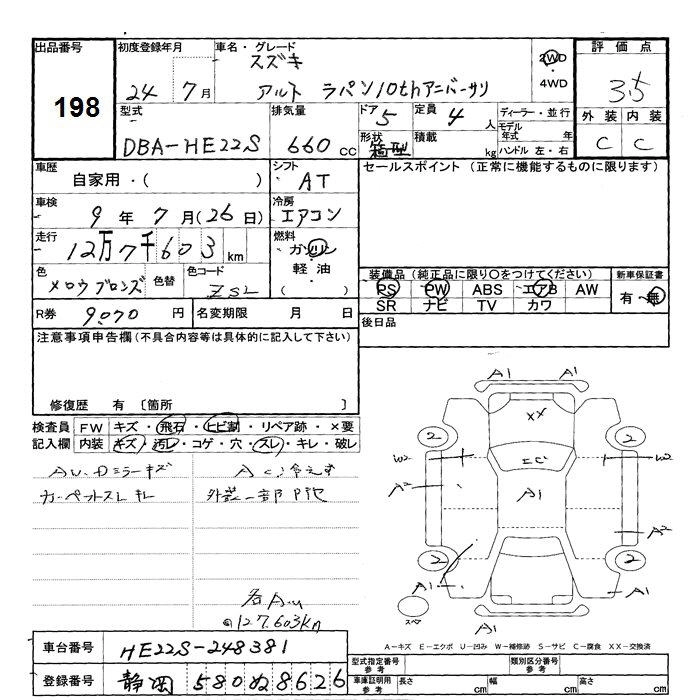 出品番号 198
初度登録年月 24 7月
車名・グレード スズキ アルト ラパン10thアニバーサリ
2WD
・
4WD
評価点 3.5
外装 内装
C C
型式 DBA-HE22S
排気量 660 cc
ドア 5
定員 4 人
形状 箱型
積載 kg
ディーラー・並行
モデル年式 年
ハンドル 左・右
車歴 自家用・( )
シフト AT
セールスポイント (正常に機能するものに限ります)
車検 9 年 7 月 (26 日)
冷房 エアコン
走行 12万7千603 km
燃料 ガソリン
軽油
( )
色 メロウブロンズ
色替
色コード ZSL
装備品 (純正品に限り〇をつけてください)
PS PW ABS エアB AW
SR ナビ TV カワ
新車保証書
有・無
R券 9,070 円
名変期限 月 日
後日品
注意事項申告欄 (不具合内容等は具体的に記入して下さい)
修復歴 有 〔箇所 〕
検査員記入欄
FW キズ・飛石・ヒビ割・リペア跡・×要
内装 キズ・汚レ・コゲ・穴・スレ・キレ・破レ
AU・Dミラーキズ
カーペットスレキレ
AC冷えず
外装一部
各AU
◎127,603km
A1 A1
XX
2 2
W2 W2
EC
A2 A1
A2
2 2
A1 A1
スペア
A1
A-キズ E-エクボ U-凹み W-補修跡 S-サビ C-腐食 XX-交換済
車台番号 HE22S-248381
登録番号 静岡 580 ぬ 8626
型式指定番号 参考
類別区分番号 参考
車庫証明用 参考
長さ cm
幅 cm
高さ cm